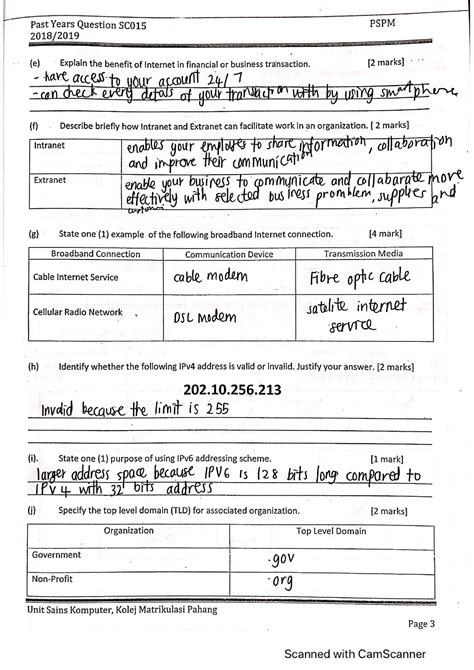 Past Years Question SC015 PSPM
2018/2019
(e) Explain the benefit of Internet in financial or business transaction. [2 marks]
- have access to your account 24/7
- can check every details of your transaction with by using smartphone
(f) Describe briefly how Intranet and Extranet can facilitate work in an organization. [ 2 marks]
Intranet enables your employees to share information, collaboration
and improve their communication
Extranet enable your business to communicate and collabarate more
effectively with selected business promblem, supplier and
(g) State one (1) example of the following broadband Internet connection. [4 mark]
Broadband Connection Communication Device Transmission Media
Cable Internet Service cable modem Fibre optic cable
Cellular Radio Network DSL Modem satelite internet
service
(h) Identify whether the following IPv4 address is valid or invalid. Justify your answer. [2 marks]
202.10.256.213
Invalid because the limit is 255
(i). State one (1) purpose of using IPv6 addressing scheme. [1 mark]
larger address space because IPV6 is 128 bits long compared to
IPV4 with 32 bits address
(j) Specify the top level domain (TLD) for associated organization. [2 marks]
Organization Top Level Domain
Government .gov
Non-Profit .org
Unit Sains Komputer, Kolej Matrikulasi Pahang
Page 3
Scanned with CamScanner